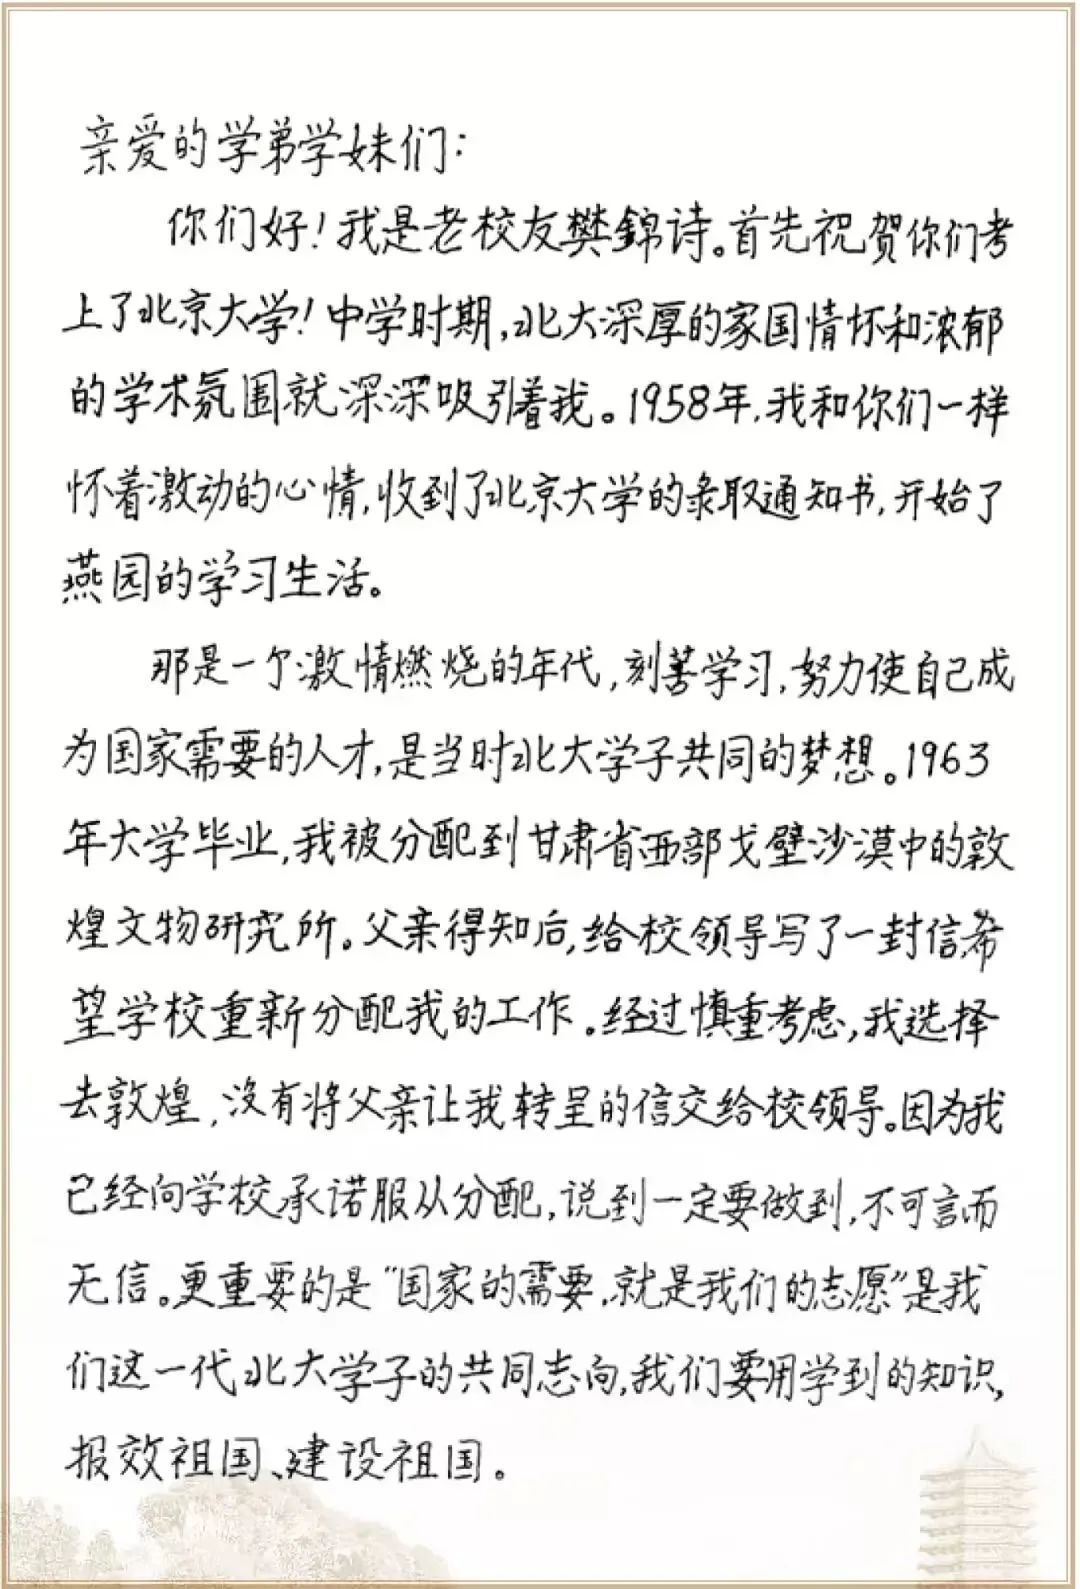 亲爱的学弟学妹们：
你们好！我是老校友樊錦诗。首先祝贺你们考
上了北京大学！中学时期，北大深厚的家国情怀和浓郁
的学术氛围就深深吸引着我。1958年，我和你们一样
怀着激动的心情，收到了北京大学的录取通知书，开始了
燕园的学习生活。
那是一个激情燃烧的年代，刻苦学习，努力使自己成
为国家需要的人才，是当时北大学子共同的梦想。1963
年大学毕业，我被分配到甘肃省西部戈壁沙漠中的敦
煌文物研究所。父亲得知后，给校领导写了一封信，希
望学校重新分配我的工作。经过慎重考虑，我选择
去敦煌，没有将父亲让我转呈的信交给校领导。因为我
已经向学校承诺服从分配，说到一定要做到，不可言而
无信。更重要的是“国家的需要，就是我们的志愿”是我
们这一代北大学子的共同志向，我们要用学到的知识，
报效祖国、建设祖国。